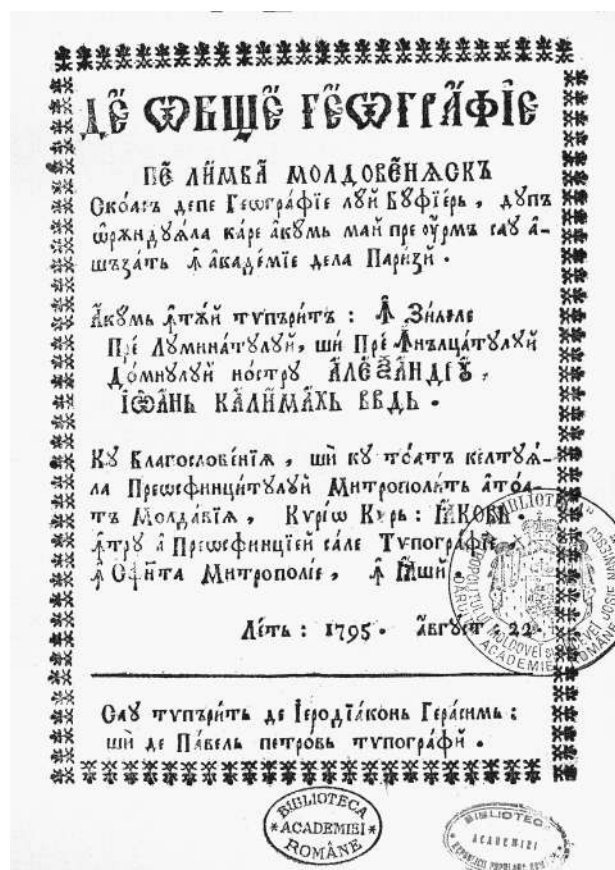 ДЕ ѠБЩЕ ГЕѠГРА́ФІЕ
ПЕ ЛИ́МБА МОЛДОВЕНѦСКЪ
Скоа́съ депе Геѡгра́фїе лꙋй Бꙋфїе́рь , дꙋпъ
ѡ҆рѫндꙋѧ́ла ка́ре а҆кꙋмь май пре ᲂу҆рмъ саꙋ а҆-
шъза́ть ꙟ҆ а҆каде́мїе дела Пари́зй .
А҆кꙋмь ꙟ҆тѫ́й тѵпъри́тъ : Ꙟ҆ Зи́леле
Пре́ Лꙋмина́тꙋлꙋй , шѝ Пре́ Ꙟ҆нълца́тꙋлꙋй
До́мнꙋлꙋй но́стрꙋ А҆ЛЕѮА́НДРꙋ ,
І҆ѠА́НЬ КАЛИМА́ХЬ ВВДЬ .
Кꙋ Благослове́нїѧ , шѝ кꙋ то́атъ келтꙋѧ́-
ла Преѡсфинци́тꙋлꙋй Митрополи́ть а҆тоа-
тъ Молда́вїѧ , Кѵрїѡ Кѵрь : І҆А́КОВЬ .
ꙟ҆трꙋ а҆ Преѡсфинцїей са́ле Тѵпогра́фїе ,
ꙟ҆ Сфи҃нта Митропо́лїе , ꙟ҆ Ꙗ҆́шй .
Лѣ́ть : 1795 . а҆́вгꙋст : 22 .
Саꙋ тѵпъри́ть де І҆еродїа́конь Гера́симь :
шѝ де Па́вель петро́вь тѵпогра́фй .
BIBLIOTECA
ACADEMIEI
ROMÂNE
BIBLIOTEC
ACADEMIEI